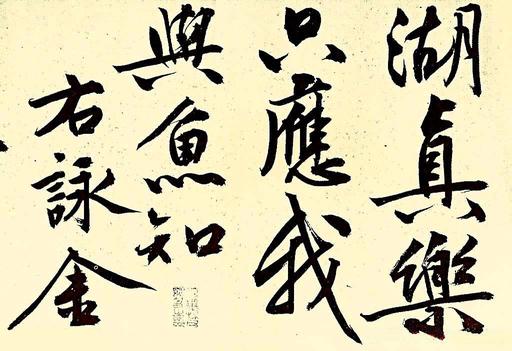 湖真樂
只應我
與魚知
右詠金